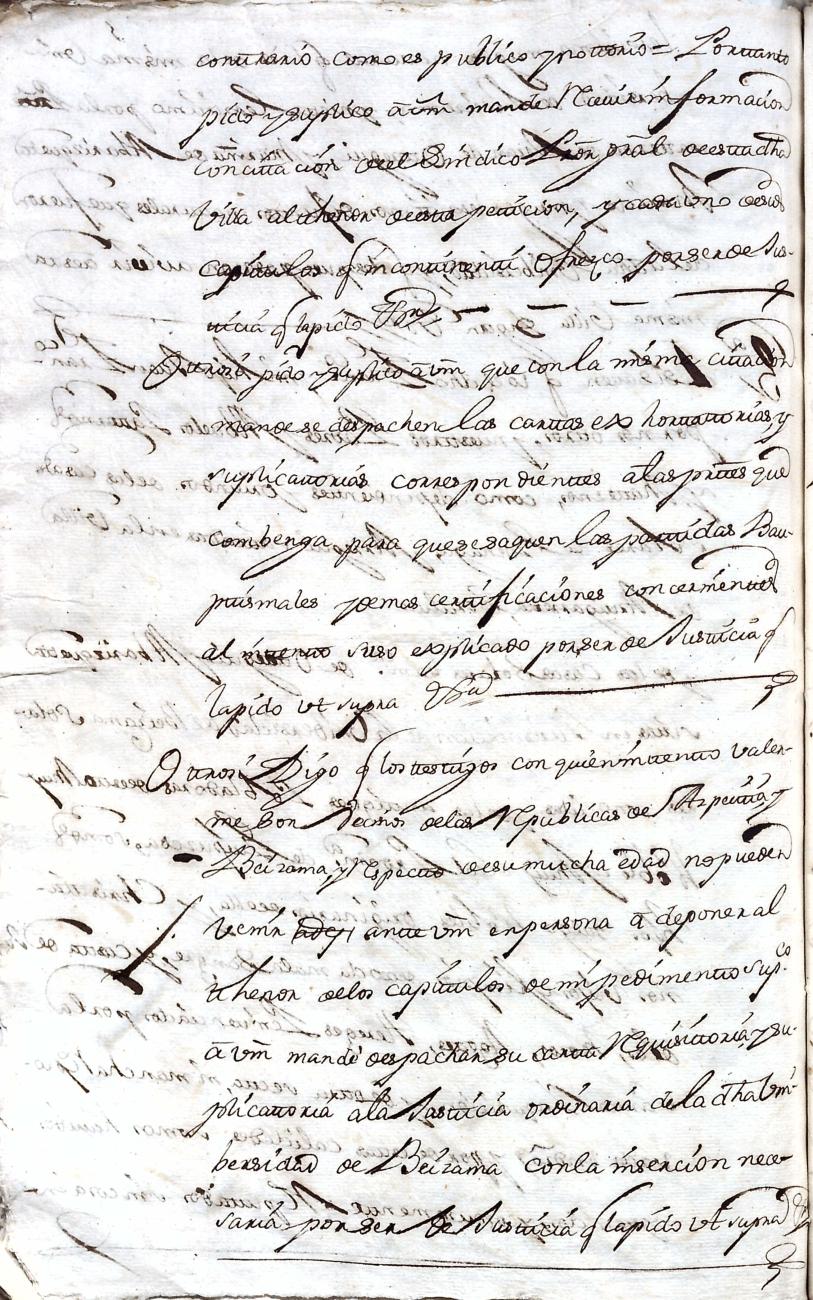 contrario como es publico y nottorio = Porttanto
pido y suplico a Vm mande Recivir imformacion
con citacion de el Sindico Pror gral de esta dha
Villa al thenor de esta peticion, y cada uno de sus
Capitulos q incontinenti Ofrezco por ser de Jus-
ticia q la pido &ra
Ottrosi pido y suplico a Vm que con la misma citacion
mande se despachen las cartas exhortatorias y
suplicattorias correspondienttes a las prttes que
combenga para que se saquen las parttidas Bau-
ptismales y demas certificaciones concernienttes
al intento suso explicado por ser de Justticia q
la pido ut supra &ra
Ottrosi Digo q los testtigos con quien intento valer-
me Son Vecinos de las Republicas de Arpeitia y
Beizama, y Respecto de su mucha edad no pueden
venir antte Vm en persona a deponer al
thenor de los capitulos de mi pedimento supco
a Vm mande despachar su carta Requisittoria y su-
plicattoria a la Justicia ordinaria de la dha Vni-
bersidad de Beizama con la insercion nece-
saria por ser de Justticia q la pido ut supra &